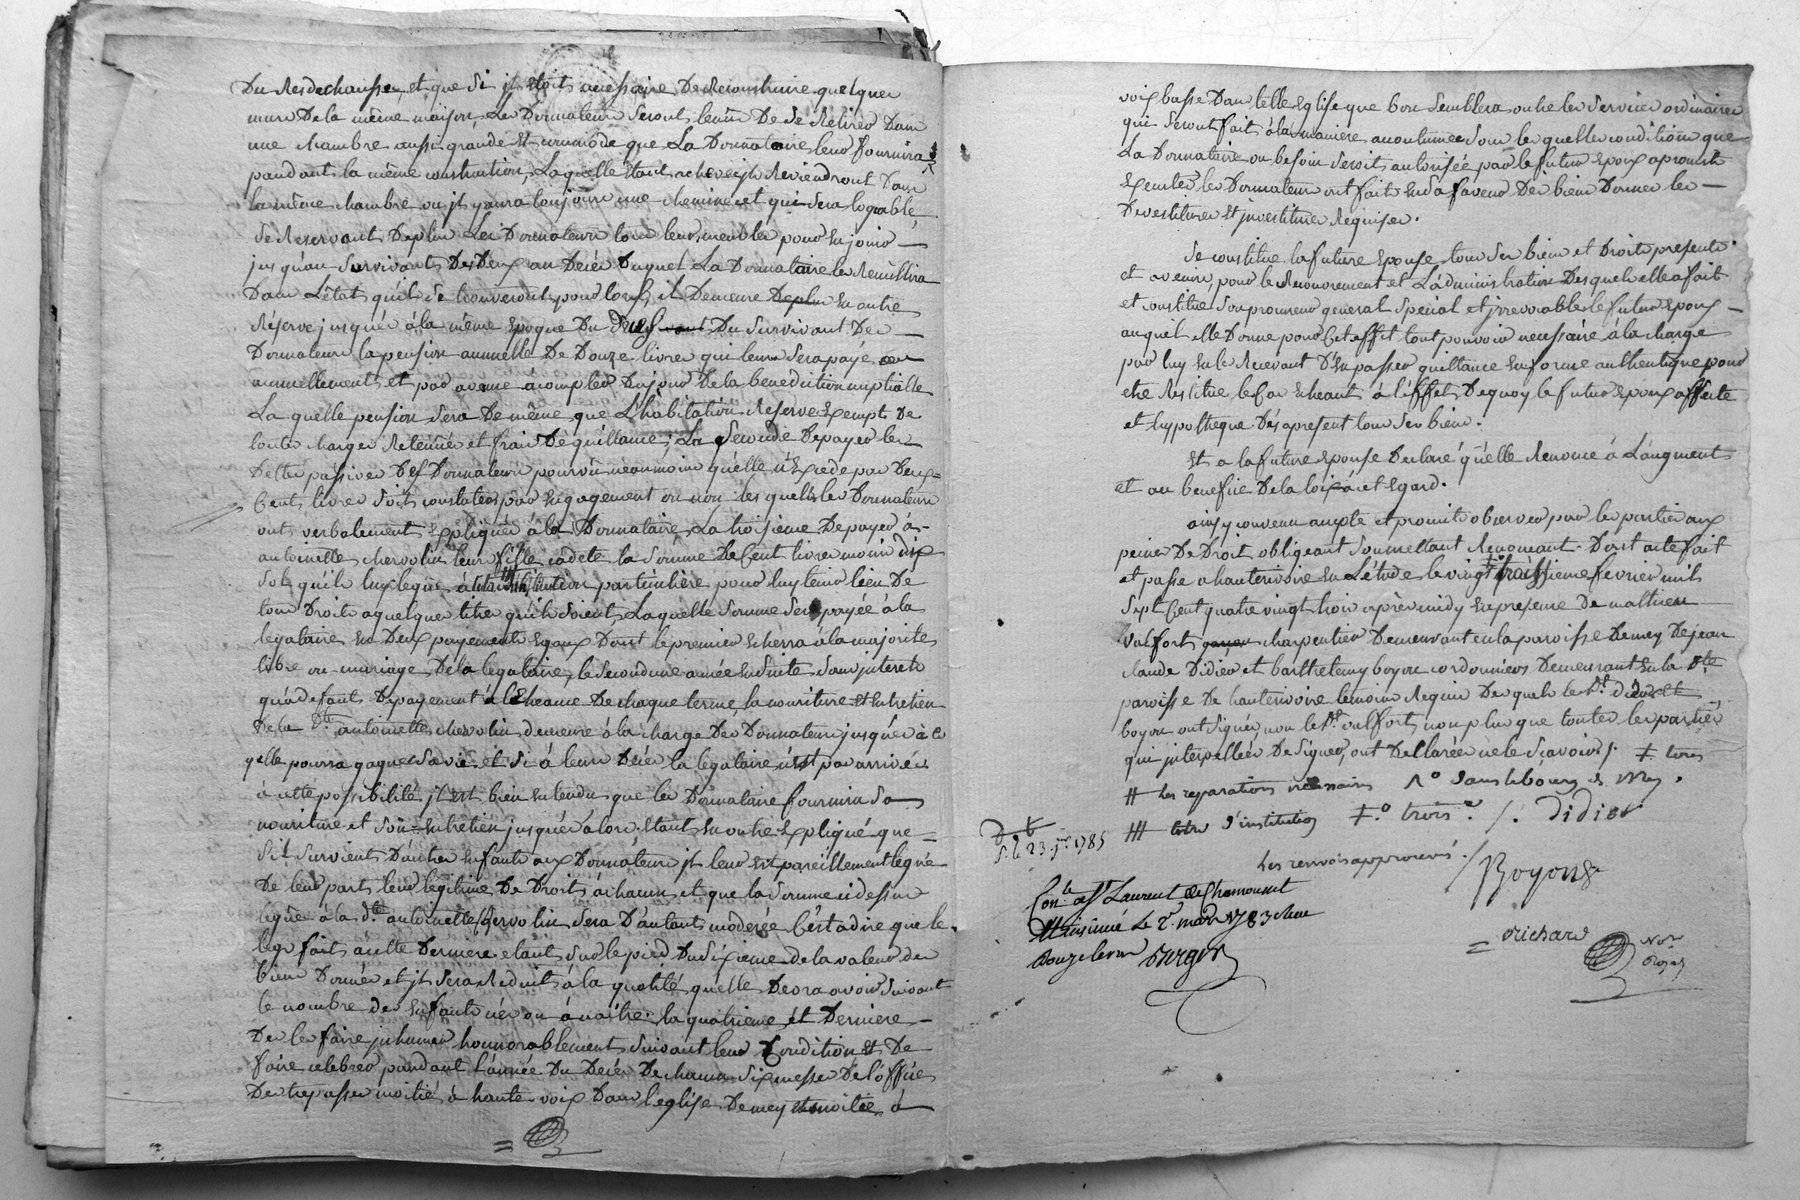 Du Resdechaussee, et que si jl Etoit necessaire De Reconstruire quelques
murs De la même maison, Les Donnateurs seront tenûs De se Retirer Dans
une chambre aussi grande Et commode que La Donnataire leur fournira #
pendant la même construction, Laquelle étant achevée jls Reviendront Dans
la même chambre ou jl y aura toujours une cheminée et qui sera logeable
se Reservant Deplus Les Donnateurs tous leurs meubles pour En jouir
jusqu'au survivant Des Deux au Décés Duquel La Donnataire les Recueillira
Dans L'état qu'ils se trouveront pour lors, il Demeure Deplus En outre
Réservé jusques à la même Epoque Du Decés Du survivant Des
Donnateurs la pension annuelle De Douze livres qui leur sera payé
annuellement et par avance à compter Dujour De la benediction nuptialle
La quelle pension sera De même que L'habitation Reservé Exempte De
toutes charges Retenües et frais De quittance; La seconde De payer les
Dettes passives Des Donnateurs pourvû neanmoins qu'elles n'Excede pas Deux
Cent livres soit constatées par Engagement ou non les quelles les Donnateurs
ont verbalement Expliquées à la Donnataire, La troisieme De payer à
antoinette chervolin leur fille cadete la somme De Cent livres moins dix
sols qu'ils luy legue à institution particuliere pour luy tenir lieu De
tous Droits a quelque titre qu'ils soient, Laquelle somme sera payée à la
legataire En Deux payements Egaux Dont le premier Echerra à la majorité
libre ou mariage De la legataire, le second une année Ensuite sans jnterets
qu'à defaut De payement à l'Echeance De chaque terme, la nourriture Et Entretien
De la Dte antoinette chervolin demeure à la charge Des Donnateurs jusques à ce
qu'elle pourra gagner sa vie et si à leurs Décés la legataire n'Est pas arrivée
à cette possibilité jl Est bien Entendu que les Donnataire fournira sa
nourriture et son Entretien jusques alors. Etant En outre Expliqué que
s'il survient D'autres Enfants aux Donnateurs jls leur Est pareillement legué
De leur part leur legitime De Droits à chacun et que la somme cidessus
leguée à la dte antoinette Chervolin sera D'autant moderée C'est adire que le
legs fait à cette Derniere etant sur le pied Du sixieme de la valeur des
biens Donnés et jl sera Reduit à la quotité qu'elle Devra avoir suivant
le nombre des Enfants nés ou à naitre. la quatrieme et Derniere
De les faire jnhumer honnorablement suivant leur Condition Et De
faire celebrer pendant l'année Du Decés De chacun six messes De l'office
Des trepassés moitié à haute voix Dans l'eglise De mey Et moitié à
voix basse Dans telle Eglise que bon semblera outre les services ordinaires
qui seront fait à la maniere accoutumée sous les quelles conditions que
La Donnataire ou besoin seroit autorisée par le futur Epoux a promit
Executer les Donnateurs ont fait En sa faveur Des biens Donnés les
Devestitures Et jnvestitures Requises.
Se constitue la future Epouse tous ses biens et Droits presents
et avenirs, pour le Recouvrement et L'administration Desquels elle a fait
et constitue son procureur general special et jrrevocable le futur Epoux
auquel elle Donne pour Cet effet tout pouvoir necessaire à la charge
par luy En le Recevant D'En passer quittance En forme authentique pour
etre Restitué le Cas Echeant à l'effet De quoy le futur Epoux affecte
et hypotheque Dés apresent tous ses biens.
Et a la future Epouse Declaré qu'elle Renonce à L'augment
et au benefice De la loix à cet Egard.
ainsy convenu accepté et promit observer par les parties aux
peines De Droit obligeant soumettant Renonceant. Dont acte fait
et passé a hauterivoire En L'étude le vingt troissieme fevrier mil
sept Cent quatre vingt trois après midy En presence De mathieu
Valfort charpentier Demeurant en la parroisse De mey De jean
claude Didier et barthelemy boyon cordonniers Demeurant En la Dte
paroisse De hauterivoire temoins Requis Desquels les Dts didier Et
boyon ont signés non le Dt valfort non plus que toutes les parties
qui jnterpellées De signer, ont Declarées ne le sçavoir /. ≠ trois
# les reparations necessaires
/// titre d'institution ≠ o trois /. Didier
Les renvois approuvés. / Boyon
D t
s. le 23. 1785
Con. aSt Laurent de Chamousset
Et insinué Le 2. mars 1783 Reçu
Douze livres
= Richard Nore Royal